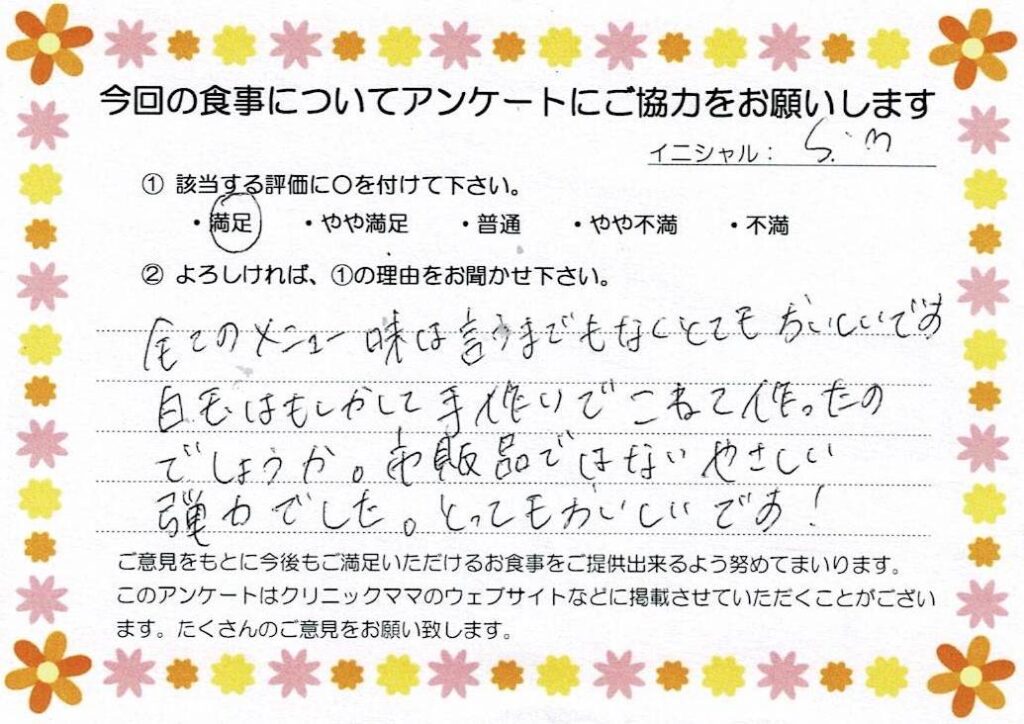 今回の食事についてアンケートにご協力をお願いします
イニシャル： S.M
① 該当する評価に〇を付けて下さい。
・満足 ・やや満足 ・普通 ・やや不満 ・不満
② よろしければ、①の理由をお聞かせ下さい。
全てのメニュー味は言うまでもなくとてもおいしいです
白玉はもしかして手作りでこねて作ったの
でしょうか。市販品ではないやさしい
弾力でした。とってもおいしいです！
ご意見をもとに今後もご満足いただけるお食事をご提供出来るよう努めてまいります。
このアンケートはクリニックママのウェブサイトなどに掲載させていただくことがござい
ます。たくさんのご意見をお願い致します。